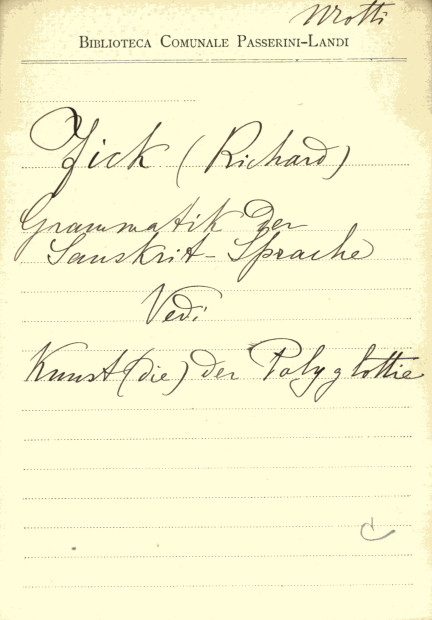 Biblioteca Comunale Passerini-Landi
Fick (Richard)
Grammatik der
Sanskrit-Sprache
Vedi
Kunst (die) der Polyglottie
C